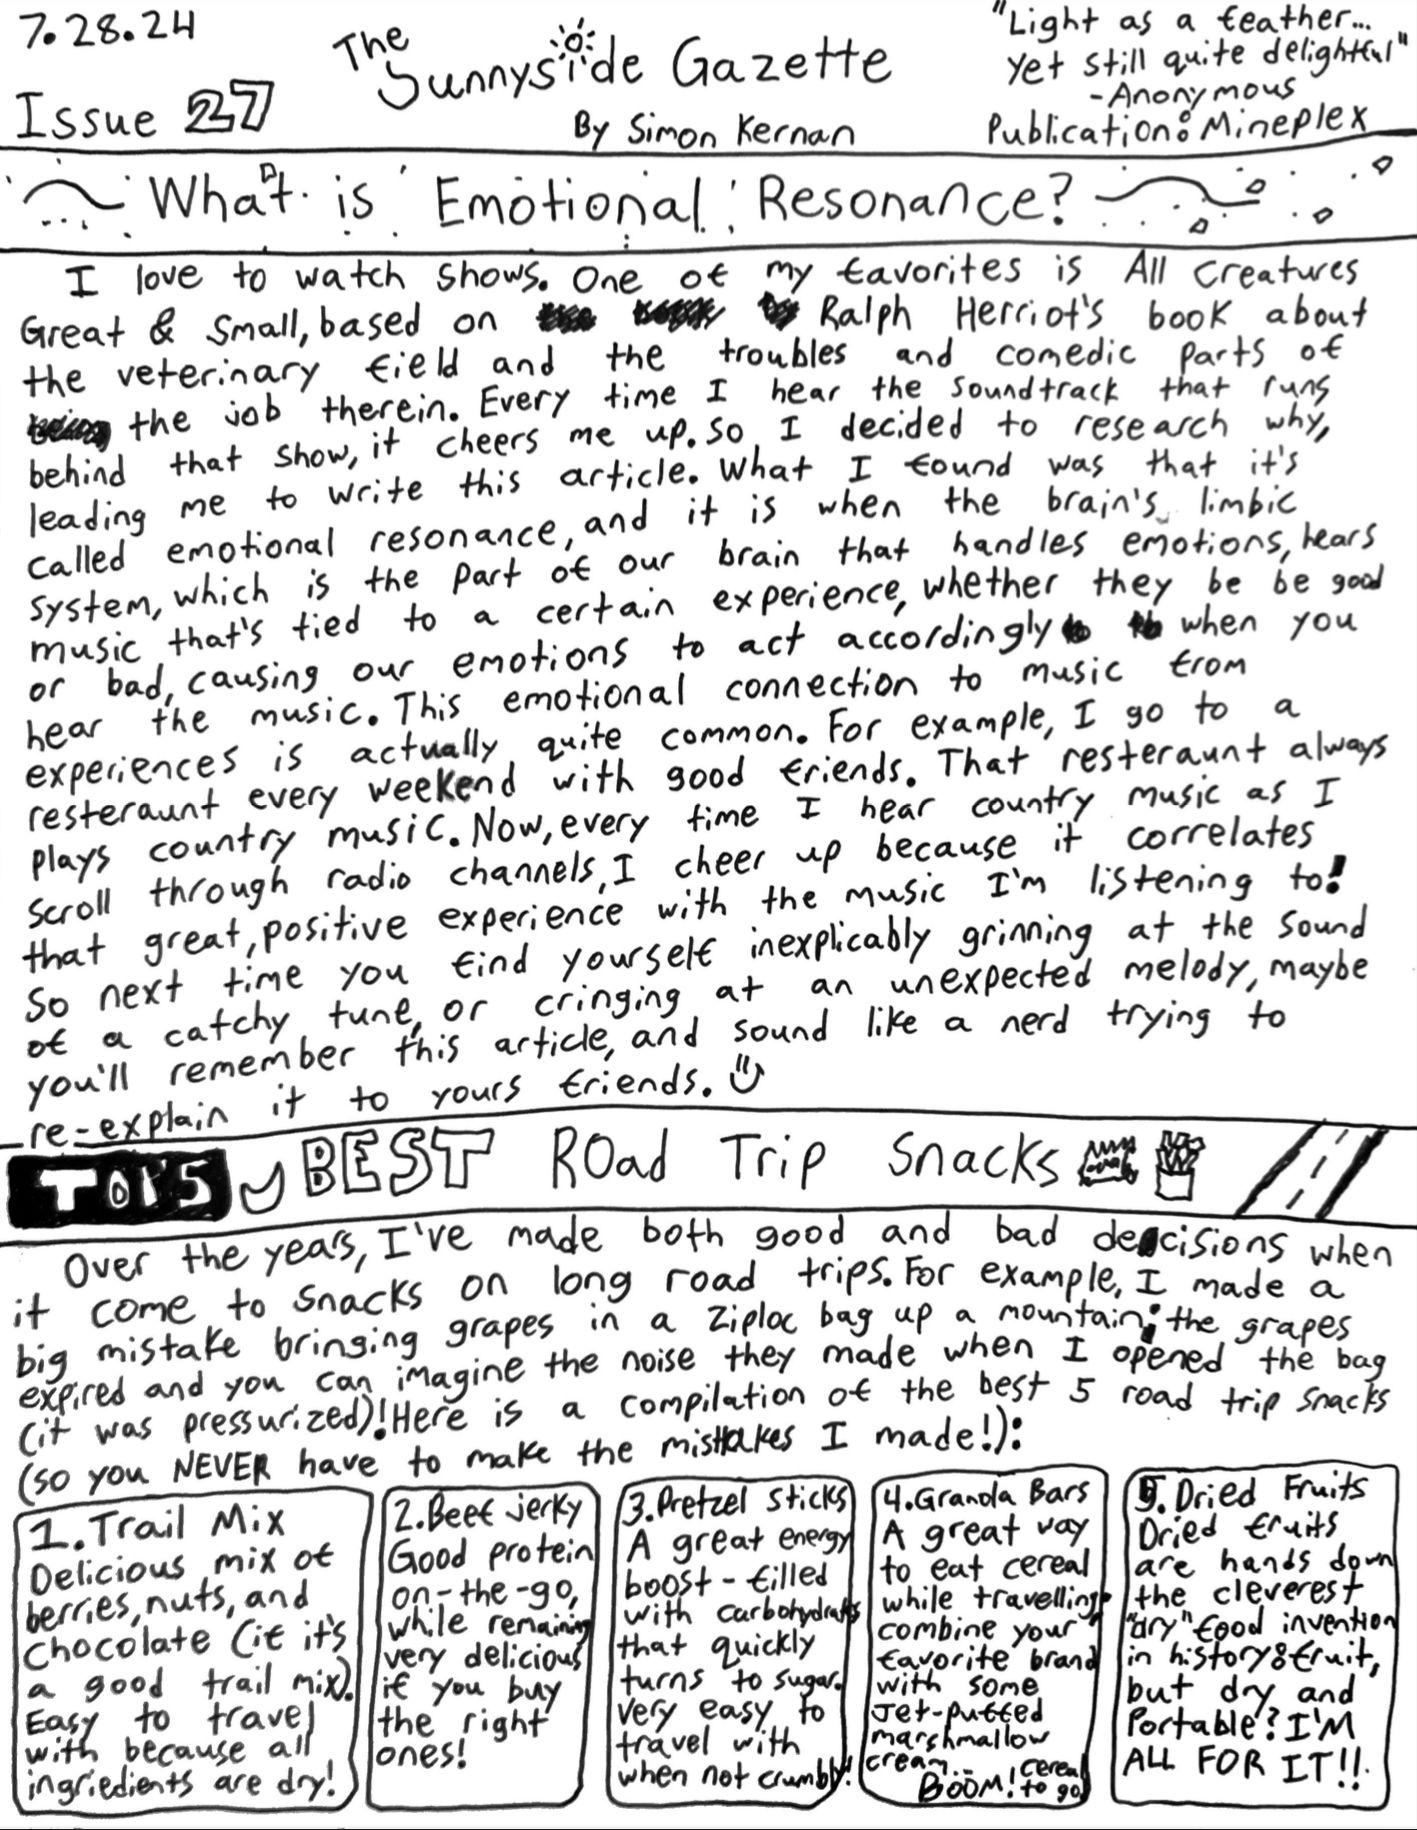 7.28.24
Issue 27
The
Sunnyside Gazette
By Simon Kernan
"Light as a feather...
yet still quite delightful"
-Anonymous
Publication: Mineplex
What is Emotional Resonance?
I love to watch shows. One of my favorites is All Creatures
Great & Small, based on Ralph Herriot's book about
the veterinary field and the troubles and comedic parts of
the job therein. Every time I hear the soundtrack that runs
behind that show, it cheers me up. So I decided to research why,
leading me to write this article. What I found was that it's
called emotional resonance, and it is when the brain's limbic
system, which is the part of our brain that handles emotions, hears
music that's tied to a certain experience, whether they be be good
or bad, causing our emotions to act accordingly when you
hear the music. This emotional connection to music from
experiences is actually quite common. For example, I go to a
resteraunt every weekend with good friends. That resteraunt always
plays country music. Now, every time I hear country music as I
scroll through radio channels, I cheer up because it correlates
that great, positive experience with the music I'm listening to!
So next time you find yourself inexplicably grinning at the sound
of a catchy tune, or cringing at an unexpected melody, maybe
you'll remember this article, and sound like a nerd trying to
re-explain it to yours friends.
TOP 5 BEST ROad Trip Snacks
Over the years, I've made both good and bad decisions when
it come to snacks on long road trips. For example, I made a
big mistake bringing grapes in a Ziploc bag up a mountain; the grapes
expired and you can imagine the noise they made when I opened the bag
(it was pressurized)! Here is a compilation of the best 5 road trip snacks
(so you NEVER have to make the mistakes I made!):
1. Trail Mix
Delicious mix of
berries, nuts, and
chocolate (if it's
a good trail mix).
Easy to travel
with because all
ingriedients are dry!
2. Beef jerky
Good protein
on-the-go,
while remaining
very delicious
if you buy
the right
ones!
3. Pretzel sticks
A great energy
boost-filled
with carbohydrates
that quickly
turns to sugar.
Very easy to
travel with
when not crumbly!
4. Granola Bars
A great way
to eat cereal
while travelling;
combine your
favorite brand
with some
Jet-puffed
marshmallow
cream...
BOOM! cereal
to go
5. Dried Fruits
Dried fruits
are hands down
the cleverest
"dry" food invention
in history: fruit,
but dry and
Portable? I'M
ALL FOR IT!!